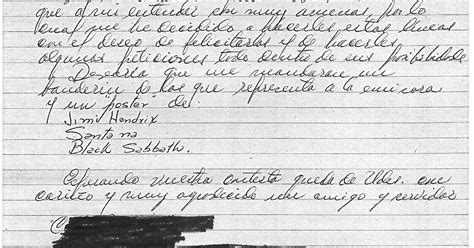 que a mi entender son muy amenas, por lo
cual me he decidido a hacerles estas lineas
con el deseo de felicitarlos y de hacerles
algunas peticiones todo dentro de sus posibilidades
Desearía que me mandaran un
banderin de los que representa a la emisora
y un "poster" de:
Jimi Hendrix
Santana
Black Sabbath.
Esperando vuestra contesta queda de Udes. con
cariño y muy agradecido un amigo y servidor